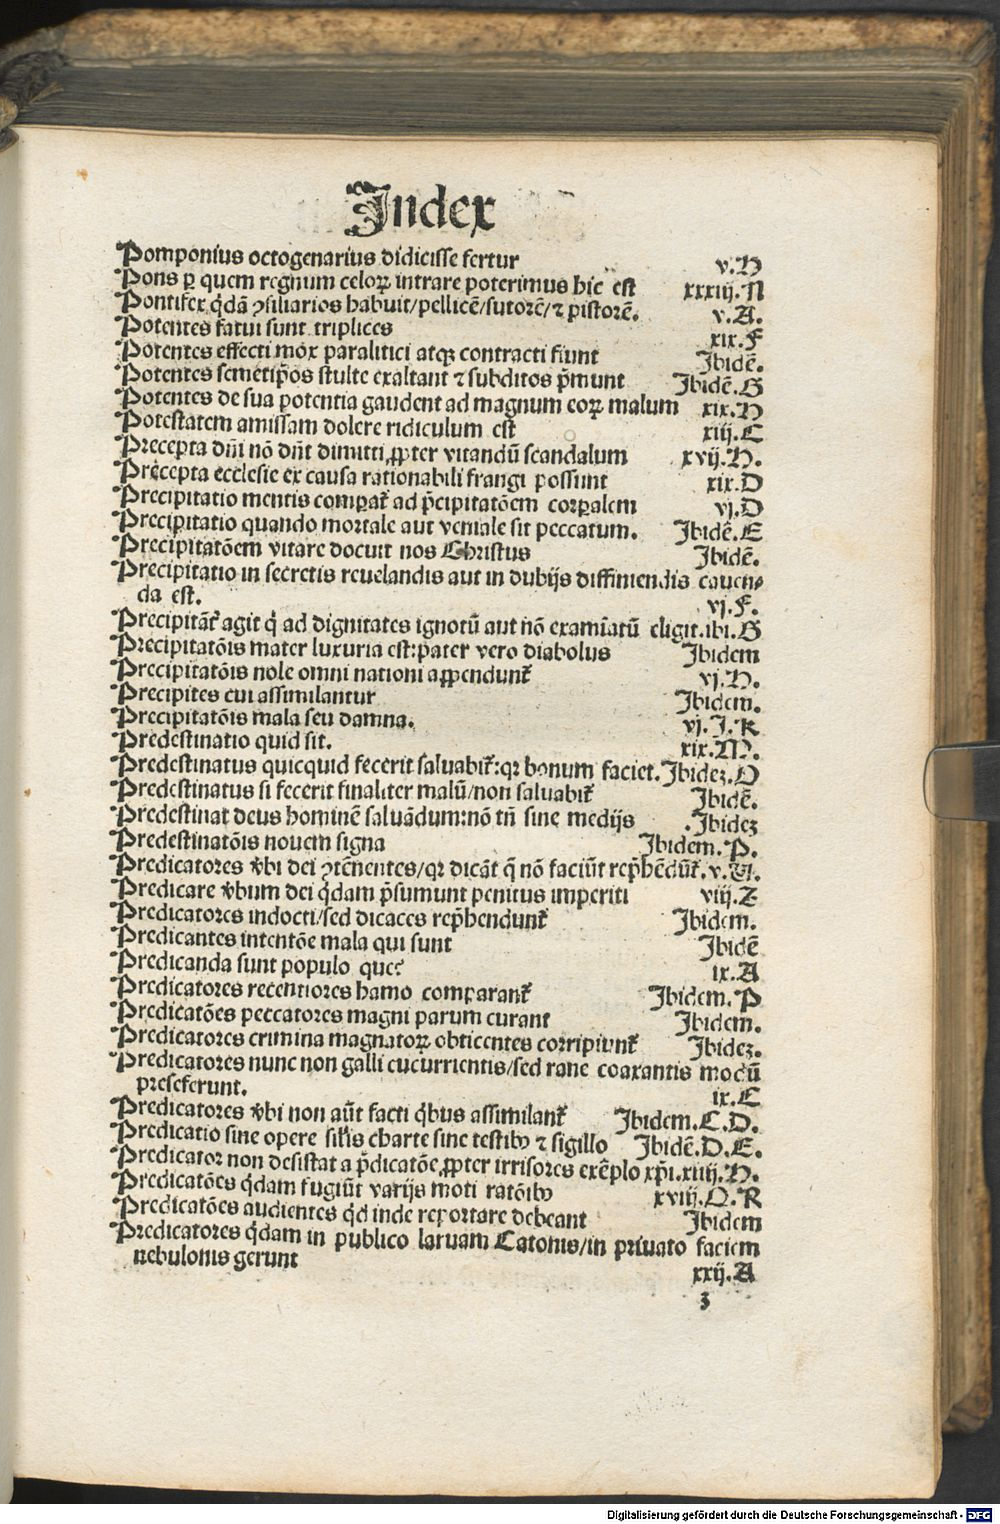 Index
Pomponius octogenarius didicisse fertur v.H
Pons ꝑ quem regnum celoꝝ intrare poterimus hic est xxxiij.N
Pontifex q̇dã ꝯsiliarios habuit/pellicẽ/sutorẽ/⁊ pistorẽ. v.A.
Potentes fatui sunt triplices xix.F
Potentes effecti mox paralitici atqꝫ contracti fiunt Ibidẽ.
Potentes semetip̃os stulte exaltant ⁊ subditos p̃munt Ibidẽ.G
Potentes de sua potentia gaudent ad magnum eoꝝ malum xix.H
Potestatem amissam dolere ridiculum est xiij.C
Precepta dñi nõ dñt dimitti ꝓpter vitandũ scandalum xvij.H.
Precepta ecclesie ex causa rationabili frangi possunt xix.D
Precipitatio mentis comparat̃ ad p̃cipitatõem corꝑalem vj.D
Precipitatio quando mortale aut veniale sit peccatum. Ibidẽ.E
Precipitatõem vitare docuit nos Christus Ibidẽ.
Precipitatio in secretis reuelandis aut in dubijs diffiniendis cauen⸗
da est. vj.F.
Precipitãt̃ agit q̇ ad dignitates ignotũ aut nõ examiatũ eligit.ibi.G
Precipitatõis mater luxuria est:pater vero diabolus Ibidem
Precipitatõis nole omni nationi aꝑpendunt̃ vj.H.
Precipites cui assimilantur Ibidem.
Precipitatõis mala seu damna. vj.I.K
Predestinatio quid sit. xix.M.
Predestinatus quicquid fecerit saluabit̃:qꝛ bonum faciet.Ibideꝫ.O
Predestinatus si fecerit finaliter malũ/non saluabit̃ Ibidẽ.
Predestinat deus hominẽ saluãdum:nõ tñ sine medijs .Ibideꝫ
Predestinatõis nouem signa Ibidem.P.
Predicatores v̾bi dei ꝯtẽnentes/qꝛ dicãt q̃ nõ faciũt rep̃hẽdũt̃.v.U.
Predicare v̾bum dei q̇dam p̃sumunt penitus imperiti viij.Z
Predicatores indocti/sed dicaces rep̃hendunt̃ Ibidem.
Predicantes intentõe mala qui sunt Ibidẽ
Predicanda sunt populo que ix.A
Predicatores recentiores hamo comparant̃ Ibidem.P
Predicatões peccatores magni parum curant Ibidem.
Predicatores crimina magnatoꝝ obticentes corripiunt̃ Ibideꝫ.
Predicatores nunc non galli cucurrientis/sed rane coaxantis modũ
preseferunt. ix.C
Predicatores v̾bi non aũt facti q̇bus assimilant̃ Ibidem.C.D.
Predicatio sine opere sil̃is charte sine testibꝰ ⁊ sigillo Ibidẽ.D.E.
Predicator non desistat a p̃dicatõe ꝓpter irrisores exẽplo xp̃i.xiiij.H.
Predicatões q̇dam fugiũt varijs moti ratõibꝰ xviij.Q.R
Predicatões audientes q̇d inde reportare debeant Ibidem
Predicatores q̇dam in publico laruam Catonis/in priuato faciem
nebulonis gerunt xxij.A
3
Digitalisierung gefördert durch die Deutsche Forschungsgemeinschaft - DFG